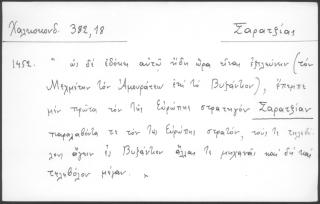 Χαλκοκονδ. 382,18 Σαρατζίας
1452. " ὡς δὲ ἐδόκει αὐτῷ ἤδη ὥρα εἶναι ἐξελαύνειν (τὸν
Μεχμέτην τὸν Ἀμουράτεω ἐπὶ τὸ Βυζάντιον), ἔπεμπε
μὲν πρῶτα τὸν τῆς Εὐρώπης στρατηγὸν Σαρατζίαν
παραλαβόντα τε τὸν τῆς Εὐρώπης στρατόν, τούς τε τηλεβό-
λους ἄγειν ἐς Βυζάντιον ἄλλας τε μηχανὰς καὶ δὴ καὶ
τηλεβόλον μέγαν. "